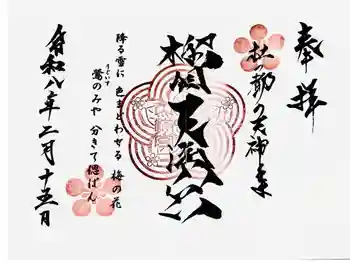 奉拝
杜の都の天神さま
榴岡天満宮
降る雪に 色まどわせる 梅の花
鶯のみや 分きて偲ばん
うぐいす
令和八年二月十五日